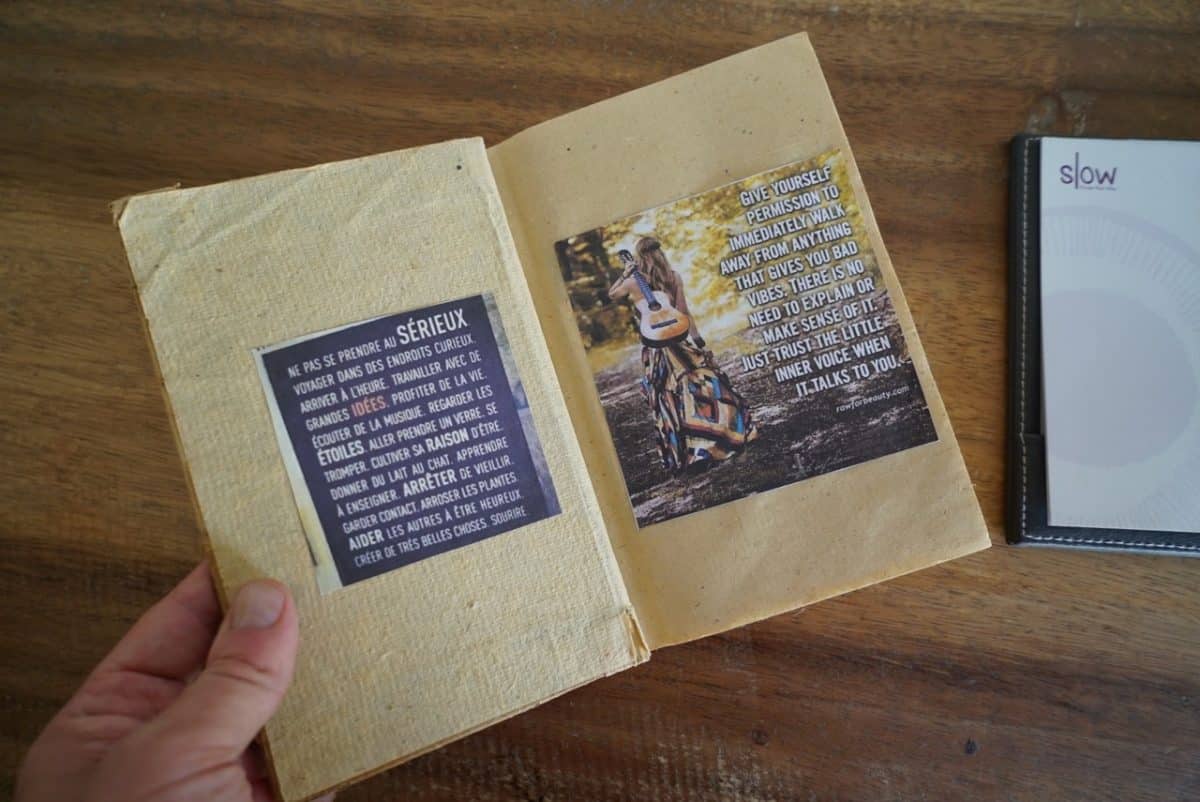 NE PAS SE PRENDRE AU SÉRIEUX
VOYAGER DANS DES ENDROITS CURIEUX.
ARRIVER À L'HEURE. TRAVAILLER AVEC DE
GRANDES IDÉES. PROFITER DE LA VIE.
ÉCOUTER DE LA MUSIQUE. REGARDER LES
ÉTOILES. ALLER PRENDRE UN VERRE. SE
TROMPER. CULTIVER SA RAISON D'ÊTRE.
DONNER DU LAIT AU CHAT. APPRENDRE
À ENSEIGNER. ARRÊTER DE VIEILLIR.
GARDER CONTACT. ARROSER LES PLANTES.
AIDER LES AUTRES À ÊTRE HEUREUX.
CRÉER DE TRÈS BELLES CHOSES. SOURIRE.
GIVE YOURSELF
PERMISSION TO
IMMEDIATELY WALK
AWAY FROM ANYTHING
THAT GIVES YOU BAD
VIBES. THERE IS NO
NEED TO EXPLAIN OR
MAKE SENSE OF IT.
JUST TRUST THE LITTLE
INNER VOICE WHEN
IT TALKS TO YOU.
rawforbeauty.com
slow